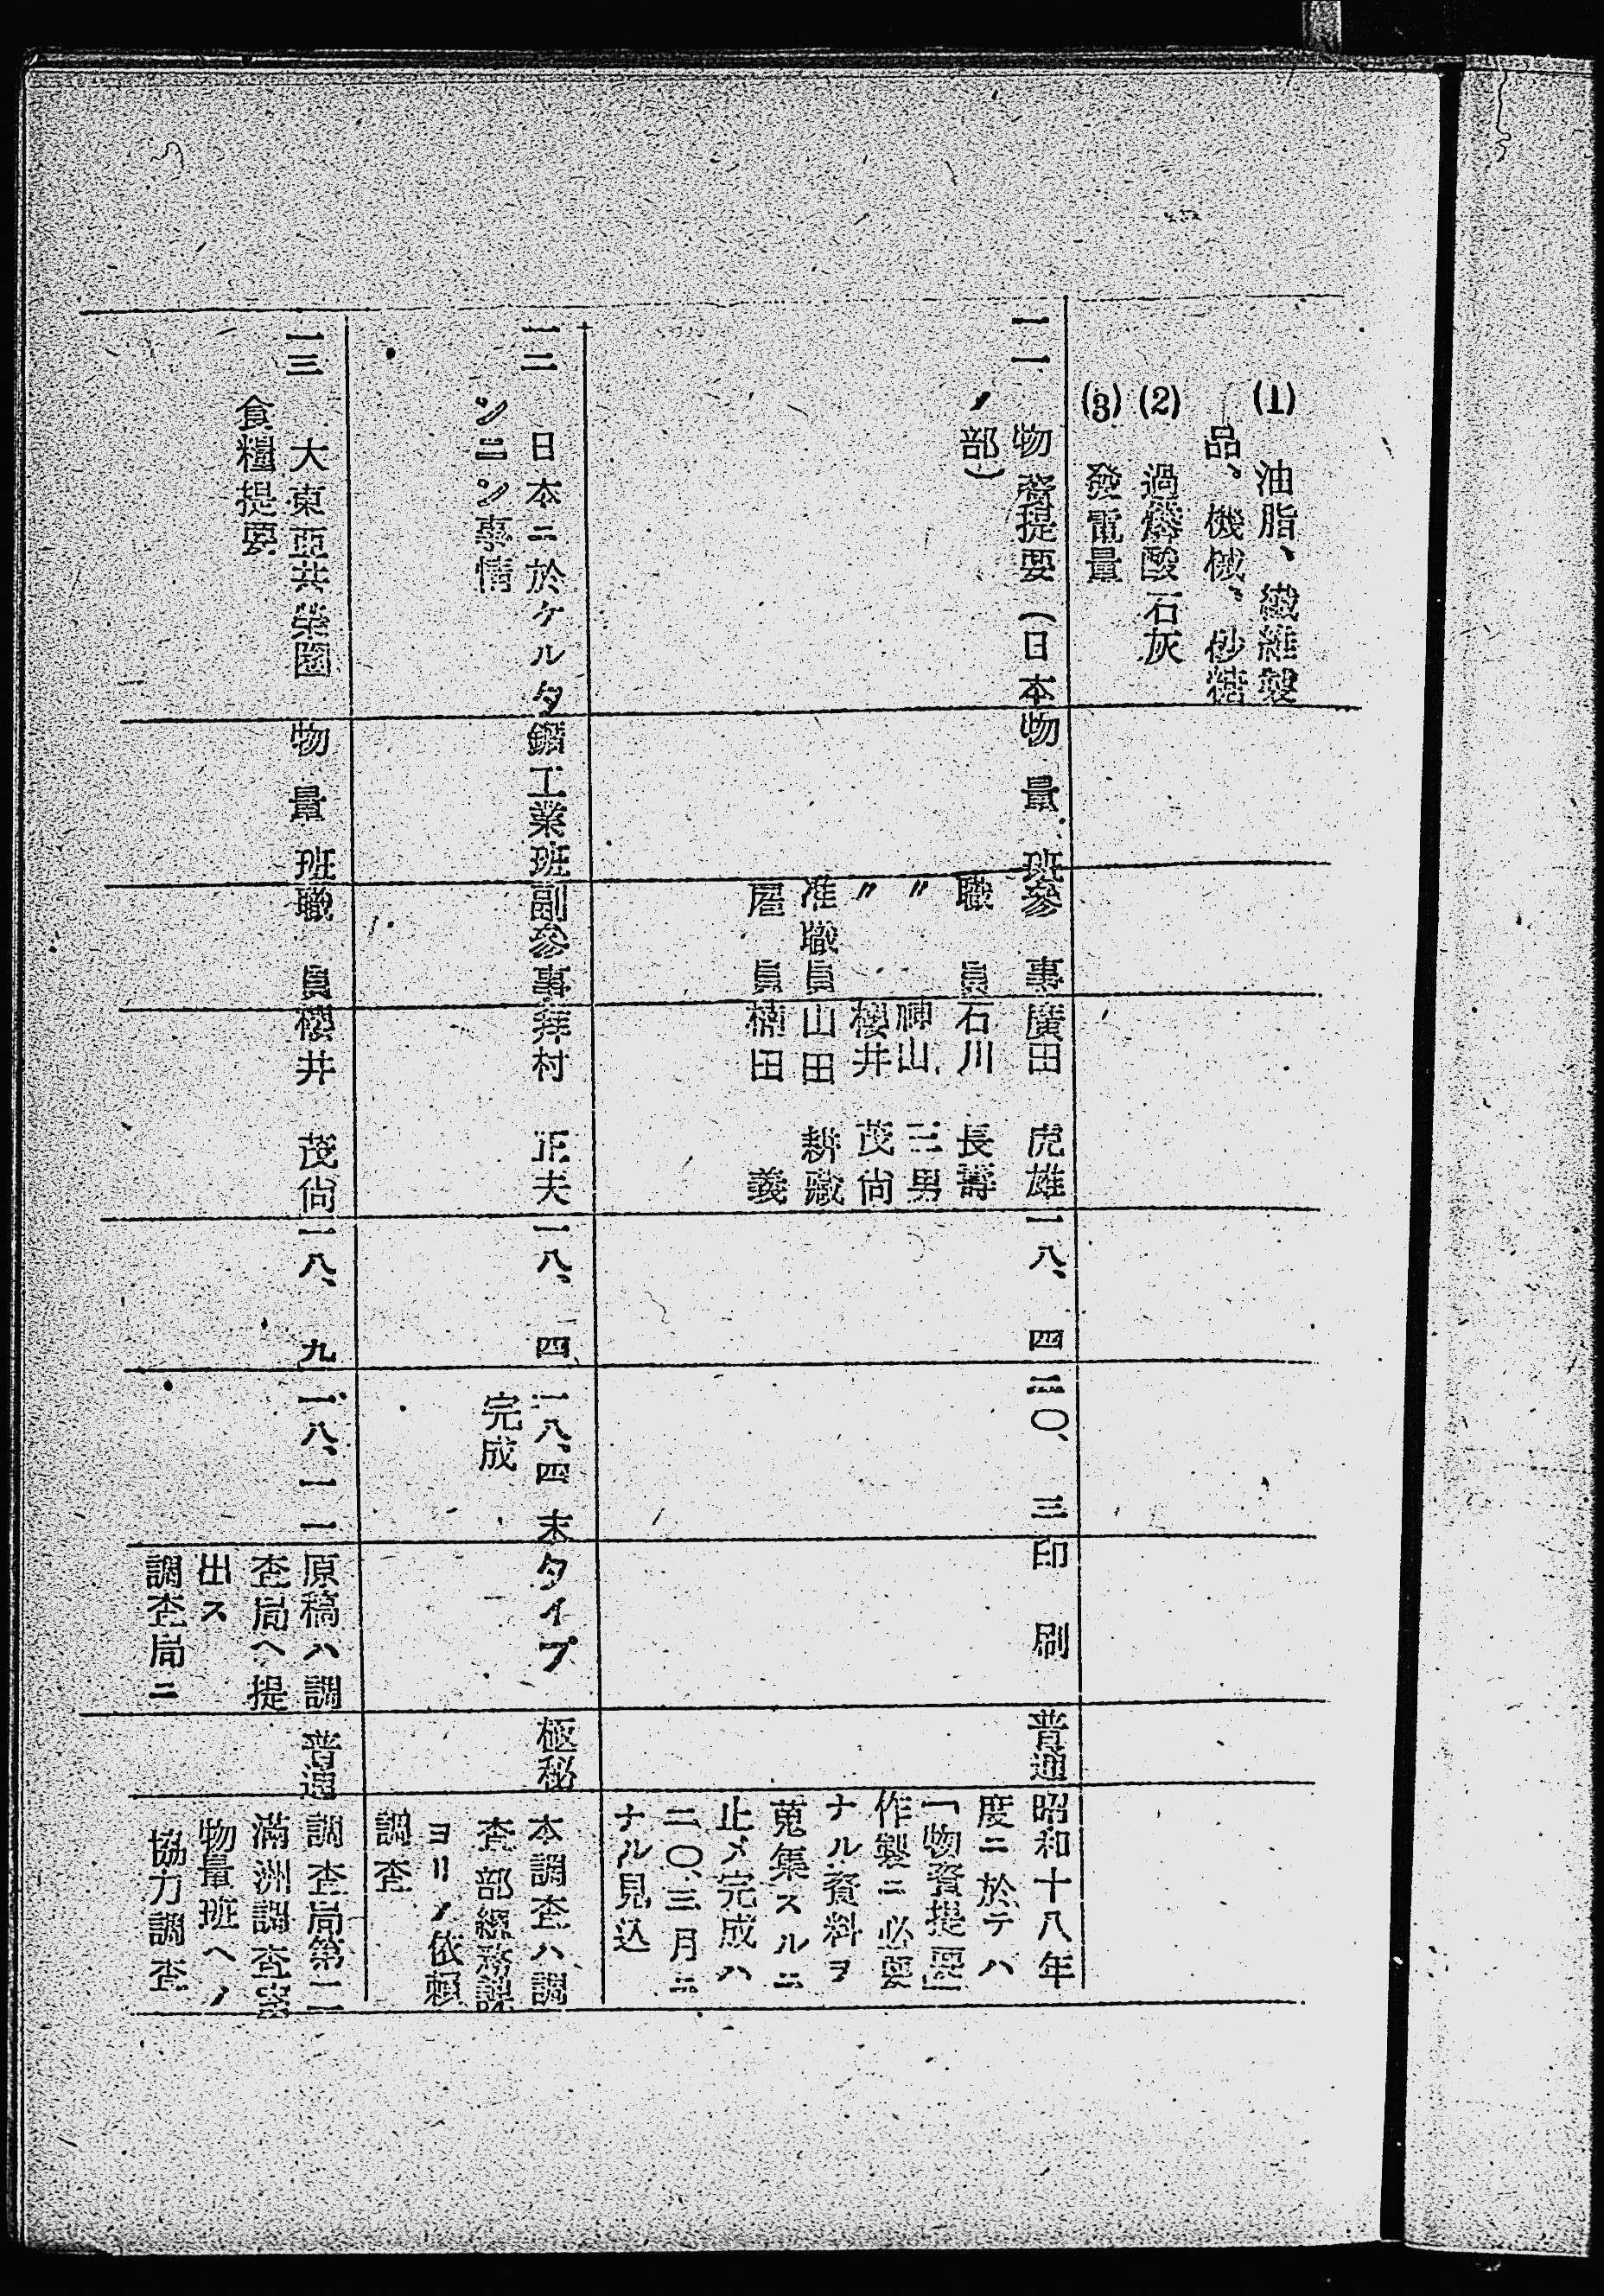 (1) 油脂、纖維製
品、機械、砂糖
(2) 過燐酸石灰
(3) 發電量
一一 物資提要（日本
ノ部）
物量班
參事 廣田 虎雄
職員 石川 長壽
〃 神山 三男
〃 櫻井 茂尙
准職員 山田 耕藏
雇員 楠田 義
一八、四
二〇、三
印刷
普通
昭和十八年
度ニ於テハ
「物資提要」
作製ニ必要
ナル資料ヲ
蒐集スルニ
止メ完成ハ
二〇、三月ニ
ナル見込
一二 日本ニ於ケルタ
ンニン事情
鑛工業班
副參事
拜村 正夫
一八、四
一八、四末
完成
タイプ
極秘
本調査ハ調
査部總務課
ヨリノ依賴
調査
一三 大東亞共榮圈
食糧提要
物量班
職員 櫻井 茂尙
一八、九
一八、一一
原稿ハ調
査局ヘ提
出ス
調査局ニ
普通
調査局第二
滿洲調査室
物量班ヘノ
協力調査